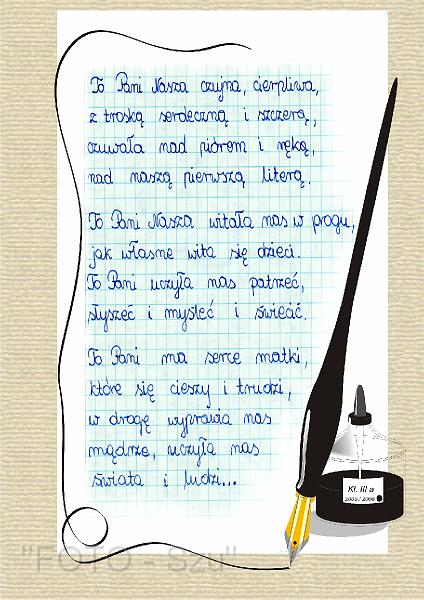 To Pani Nasza czujna, cierpliwa,
z troską serdeczną i szczerą,
czuwała nad piórem i ręką,
nad naszą pierwszą literą.
To Pani Nasza witała nas w progu,
jak własne wita się dzieci.
To Pani uczyła nas patrzeć,
słyszeć i myśleć i świecić.
To Pani ma serce matki,
które się cieszy i trudzi,
w drogę wyprawia nas
mądrze, uczyła nas
świata i ludzi...
Kl. III a
2005/2006
"FOTO - Szu"